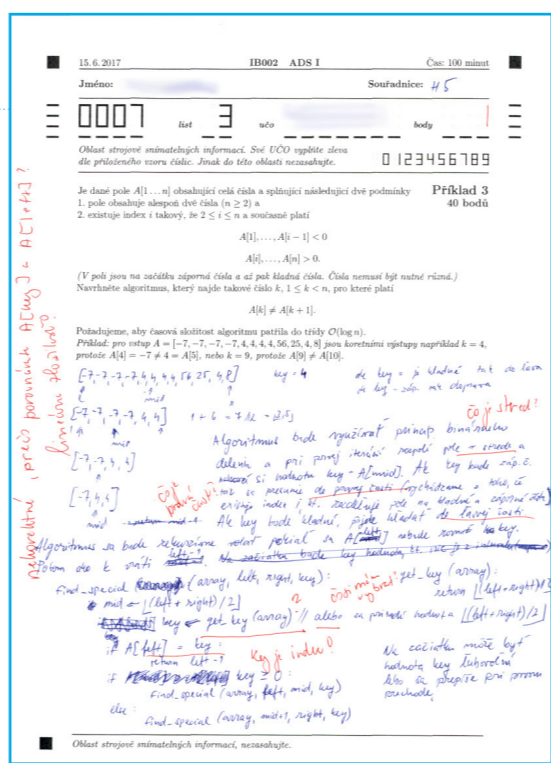 15. 6. 2017 IB002 ADS I Čas: 100 minut
Jméno: Souřadnice: H5
0007 list 3 učo body 1
Oblast strojově snímatelných informací. Své UČO vyplňte zleva
dle přiloženého vzoru číslic. Jinak do této oblasti nezasahujte.
0123456789
Je dané pole A[1 . . . n] obsahující celá čísla a splňující následující dvě podmínky
Příklad 3
40 bodů
1. pole obsahuje alespoň dvě čísla (n ≥ 2) a
2. existuje index i takový, že 2 ≤ i ≤ n a současně platí
A[1], . . . , A[i − 1] < 0
A[i], . . . , A[n] > 0.
(V poli jsou na začátku záporná čísla a až pak kladná čísla. Čísla nemusí být nutně různá.)
Navrhněte algoritmus, který najde takové číslo k, 1 ≤ k < n, pro které platí
A[k] ≠ A[k + 1].
Požadujeme, aby časová složitost algoritmu patřila do třídy O(log n).
Příklad: pro vstup A = [−7, −7, −7, −7, 4, 4, 4, 4, 56, 25, 4, 8] jsou korektními výstupy například k = 4,
protože A[4] = −7 ≠ 4 = A[5], nebo k = 9, protože A[9] ≠ A[10].
nekorektné
lineární složitost
[-7,-7,-7,-7,4,4,4,4,56,25,4,8] key = 4
[-7,-7,-7,-7,4,4]
mid
čo je stred?
[-7,-7,4,4]
Algoritmus bude využívať princíp binárneho
delenia a pri prvej iterácii rozpolí pole
si hodnotu key = A[mid]. Ak key bude záp. č.
[-7,4,4]
mid
čo je pravá časť?
do pravej časti
existuje index i, kt. rozdeľuje pole na kladné a záporné
Ak key bude kladné, pôjde hľadať do ľavej časti.
Algoritmus sa bude rekurzívne volať pokiaľ sa A[left] nebude rovnať key.
Potom ako k vráti left-1.
find_special (array, left, right, key):
get_key (array):
return ⌊(left+right)/2⌋
mid ← ⌊(left+right)/2⌋
key ← get_key (array) // alebo sa priradí hodnota ⌊(left+right)/2⌋
if A[left] = key:
return left-1
key je index?
if key ≥ 0:
find_special (array, left, mid, key)
else:
find_special (array, mid+1, right, key)
Na začiatku môže byť
hodnota key ľubovoľná
lebo sa prepíše pri prvom
prechode.
Oblast strojově snímatelných informací, nezasahujte.